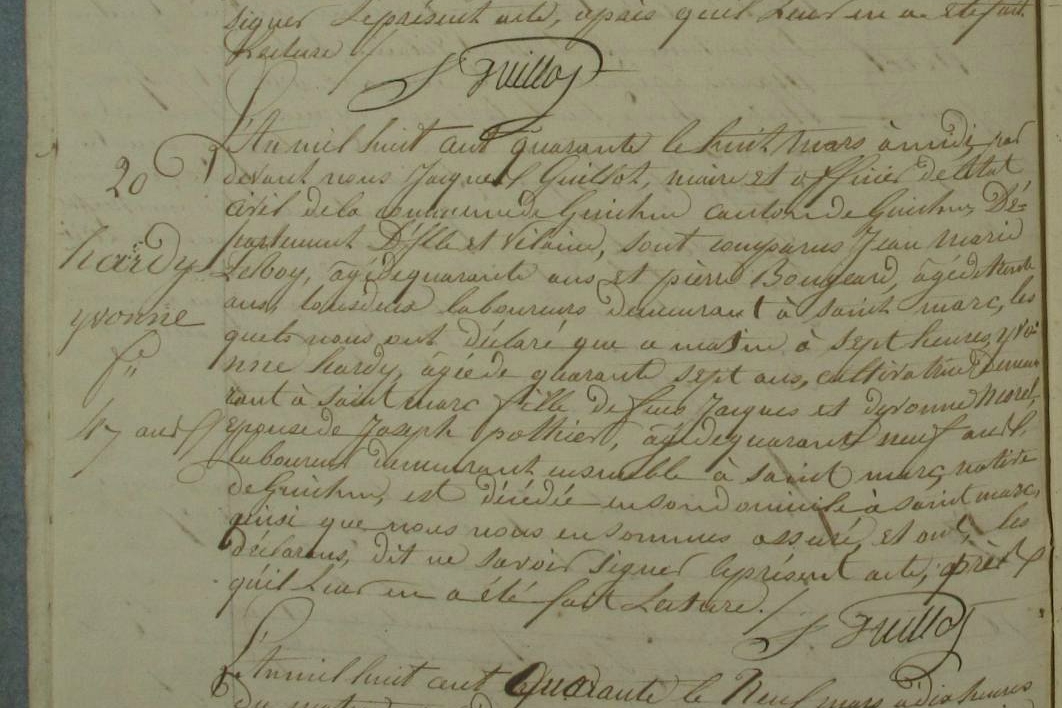 signer le présent acte, après qu'il leur en a été fait
Lecture /
J Guillot
L'An mil huit cent quarante le huit mars à midi, par
20
devant nous Jacques Guillot, maire et officier de l'état
civil de la commune de Guichen canton de Guichen, Dé=
partement D'ille et Vilaine, sont comparus Jean marie
hardy
LeRoy, âgé de quarante ans, et pierre Bougeard, âgé de trente
yvonne
ans, tous deux laboureurs demeurant à saint marc, les
quels nous ont déclaré que ce matin à sept heures, yvo
fe
nne hardy, âgée de quarante sept ans, cultivatrice Demeu
rant à saint marc fille de feus Jacques et d'yvonne morel,
47 ans
Epouse de Joseph pothier, âgé de quarante neuf ans
laboureur demeurant ensemble à saint marc, native
de Guichen, est décédée en son domicile à saint marc,
ainsi que nous nous en sommes assuré, et ont, les
déclarans, dit ne savoir signer le présent acte, après
qu'il leur en a été fait Lecture. /
J Guillot
L'An mil huit cent Quarante le Neuf mars à dix heures
Du